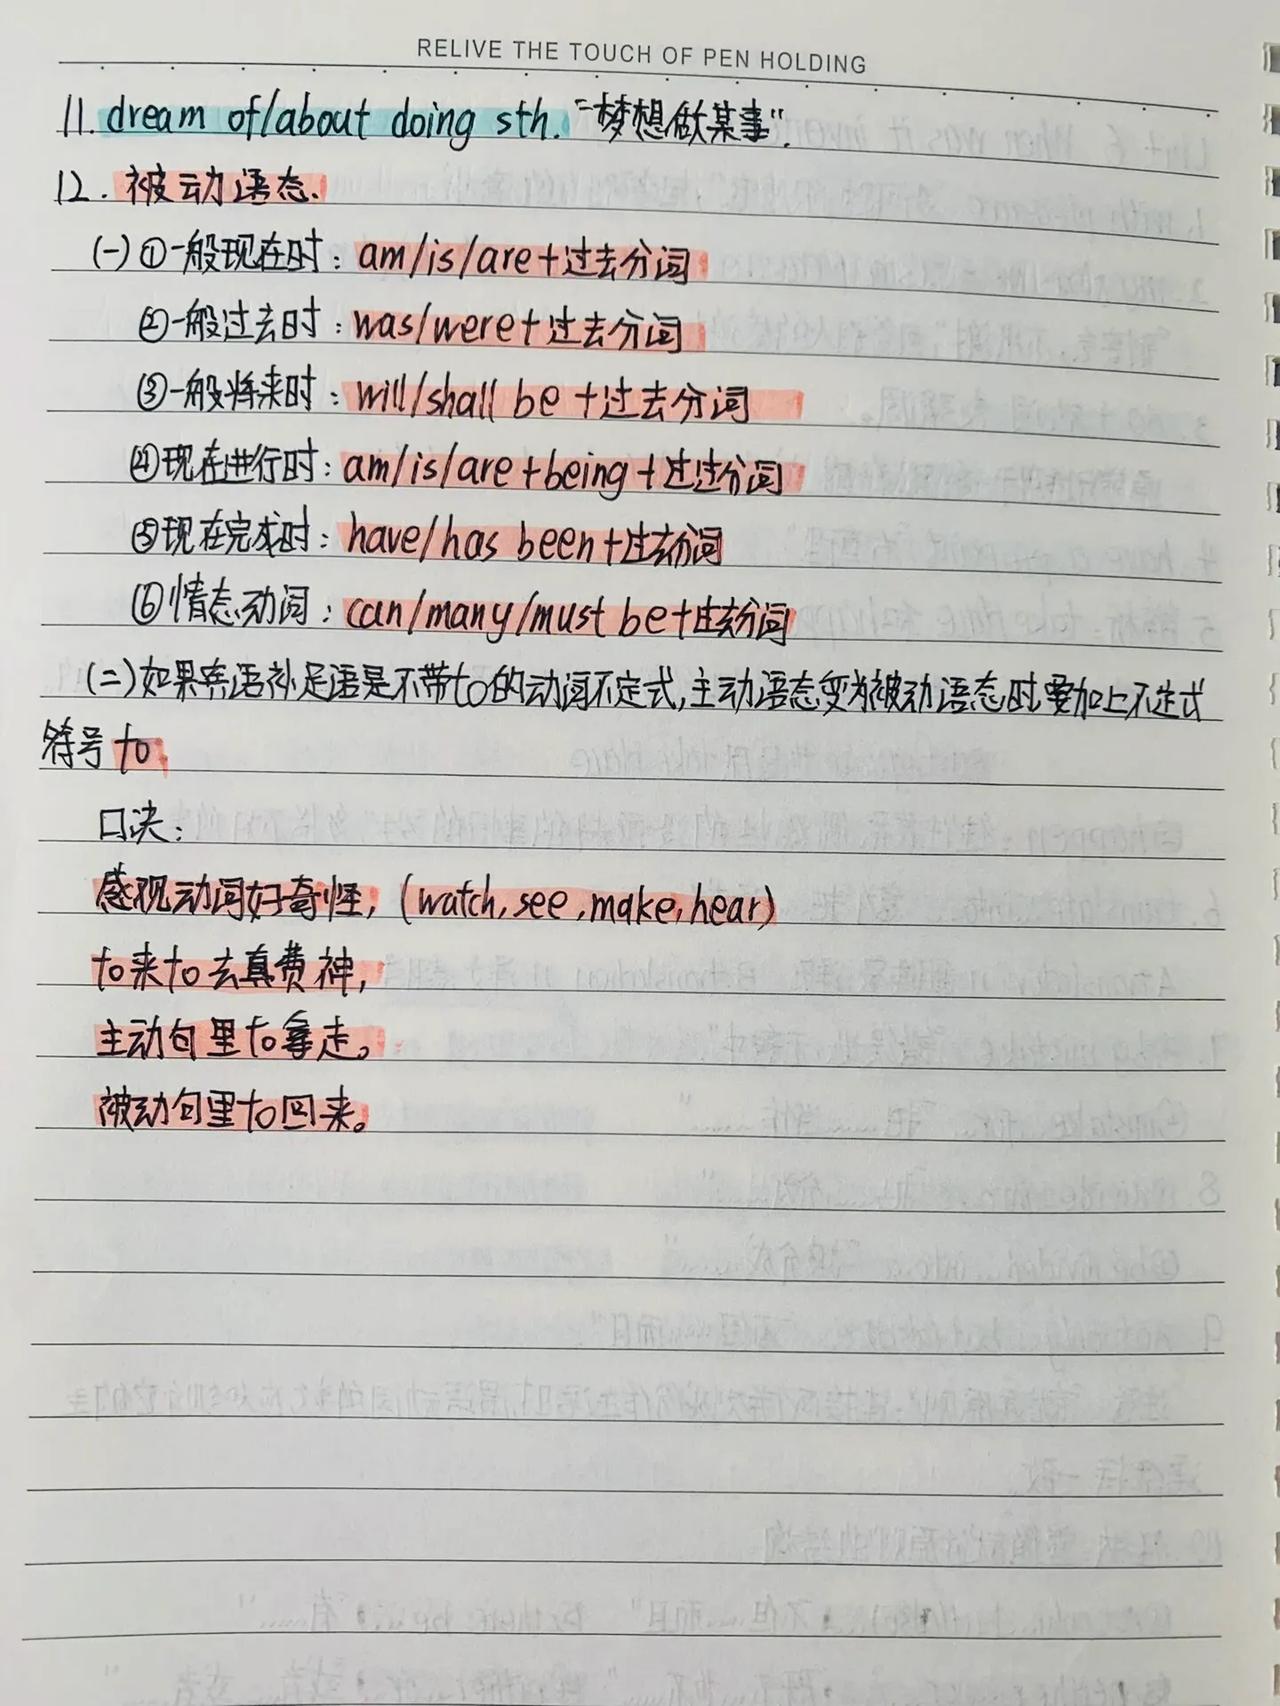 RELIVE THE TOUCH OF PEN HOLDING
11. dream of/about doing sth. "梦想做某事".
12. 被动语态.
(一)①一般现在时：am/is/are+过去分词
②一般过去时：was/were+过去分词
③一般将来时：will/shall be +过去分词
④现在进行时：am/is/are+being+过过分词
⑤现在完成时：have/has been+过去分词
⑥情态动词：can/many/must be+过去分词
(二)如果宾语补足语是不带to的动词不定式,主动语态变为被动语态时要加上不定式
符号to.
口决：
感观动词好奇怪，(watch,see,make,hear)
to来to去真费神，
主动句里to拿走。
被动句里to回来。